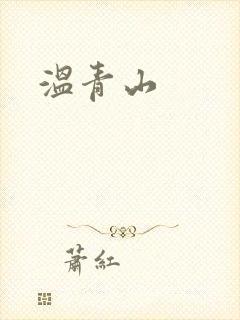 溫青山
蕭紅